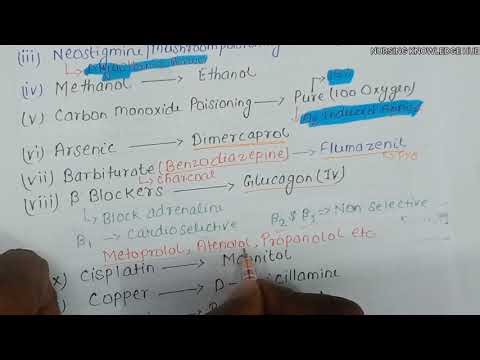 NURSING KNOWLEDGE HUB
(iii) Neostigmine/
(iv) Methanol → Ethanol
(v) Carbon Monoxide Poisioning → Pure (100 Oxygen)
(vi) Arsenic → Dimercaprol
(vii) Barbiturate (Benzodiazepine) → Flumazenil
↳ charcoal
(viii) β Blockers → Glucagon (IV)
↳ Block adrenaline
β1 → Cardioselective β2 & β3 ⇒ Non selective
Metoprolol, Atenolol, Propanolol etc
x) Cisplatin → Mannitol
Copper → D-